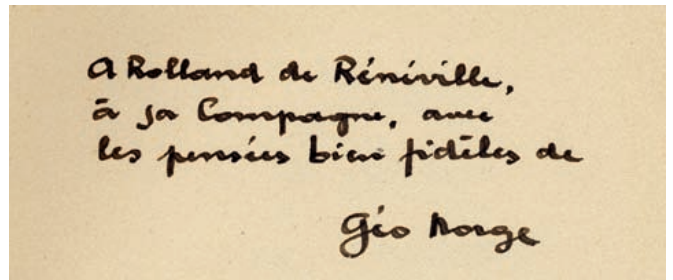 A Rolland de Rénéville,
à sa Compagne, avec
les pensées bien fidèles de
Géo Norge